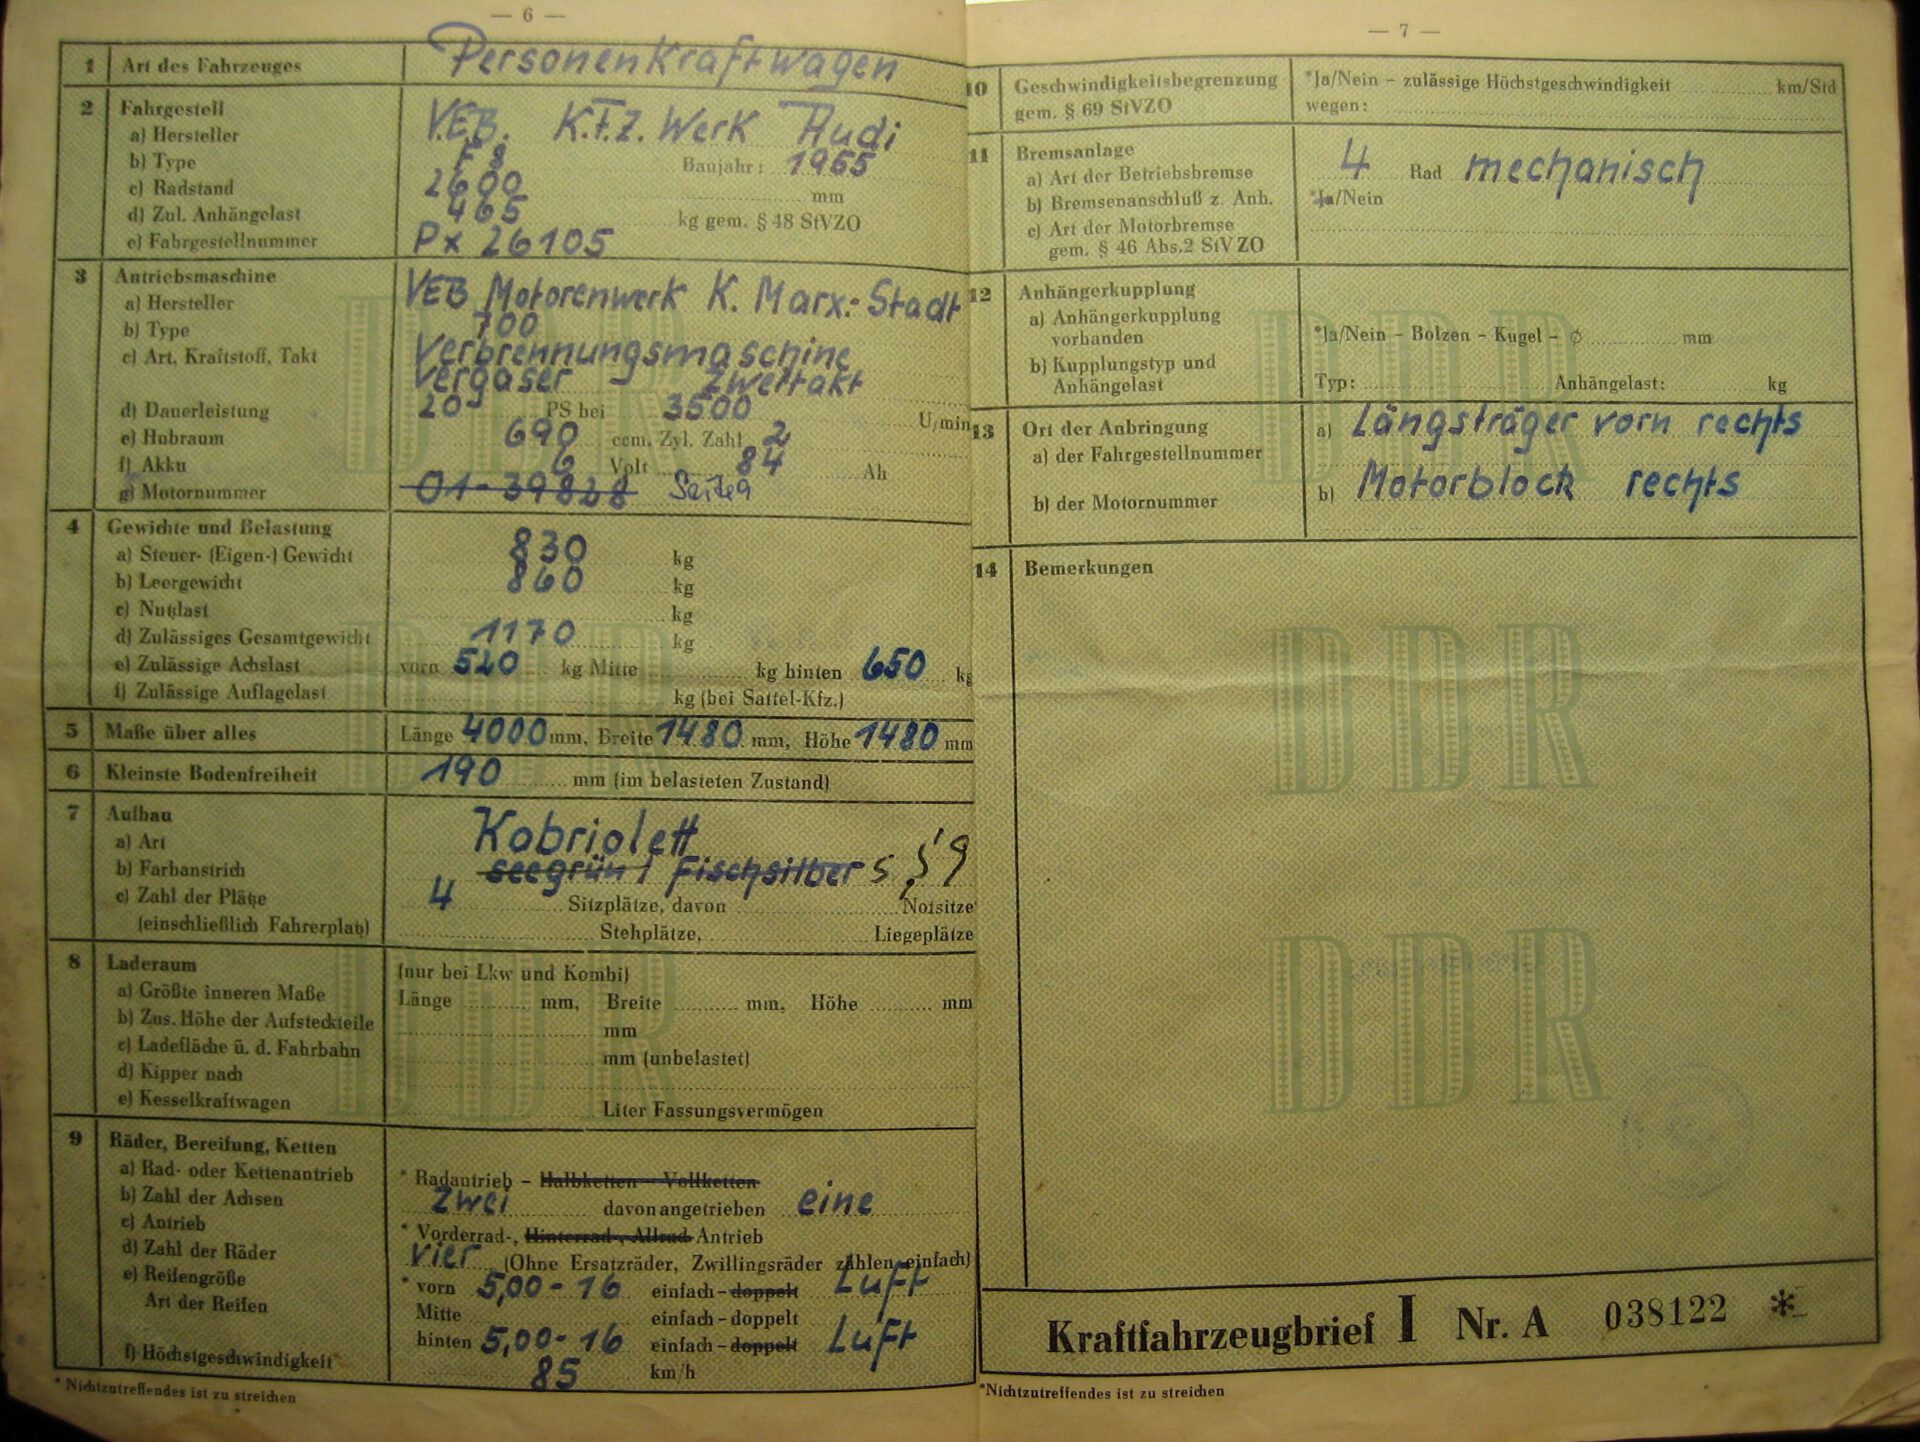 — 6 —
1 Art des Fahrzeuges Personenkraftwagen
2 Fahrgestell
a) Hersteller V.E.B. K.F.Z. Werk Audi
b) Type F 8 Baujahr: 1955
c) Radstand 2600 mm
d) Zul. Anhängelast 465 kg gem. § 48 StVZO
e) Fahrgestellnummer Px 26105
3 Antriebsmaschine
a) Hersteller VEB Motorenwerk K. Marx.-Stadt
b) Type 700
c) Art, Kraftstoff, Takt Verbrennungsmaschine
Vergaser Zweitakt
d) Dauerleistung 20 PS bei 3500 U/min
e) Hubraum 690 ccm, Zyl. Zahl 2
f) Akku 6 Volt 84 Ah
g) Motornummer 01-39828 Seite 9
4 Gewichte und Belastung
a) Steuer- (Eigen-) Gewicht 830 kg
b) Leergewicht 860 kg
c) Nutzlast kg
d) Zulässiges Gesamtgewicht 1170 kg
e) Zulässige Achslast vorn 520 kg Mitte kg hinten 650 kg
f) Zulässige Auflagelast kg (bei Sattel-Kfz.)
5 Maße über alles Länge 4000 mm, Breite 1480 mm, Höhe 1480 mm
6 Kleinste Bodenfreiheit 190 mm (im belasteten Zustand)
7 Aufbau
a) Art Kabriolett
b) Farbanstrich seegrün / Fischsilber s. S. 9
c) Zahl der Plätze 4 Sitzplätze, davon Notsitze
(einschließlich Fahrerplatz) Stehplätze, Liegeplätze
8 Laderaum (nur bei Lkw und Kombi)
a) Größte inneren Maße Länge mm, Breite mm, Höhe mm
b) Zus. Höhe der Aufsteckteile mm
c) Ladefläche ü. d. Fahrbahn mm (unbelastet)
d) Kipper nach
e) Kesselkraftwagen Liter Fassungsvermögen
9 Räder, Bereifung, Ketten
a) Rad- oder Kettenantrieb * Radantrieb – Halbketten – Vollketten
b) Zahl der Achsen zwei davon angetrieben eine
c) Antrieb * Vorderrad-, Hinterrad-, Allrad-Antrieb
d) Zahl der Räder vier (Ohne Ersatzräder, Zwillingsräder zählen einfach)
e) Reifengröße * vorn 5,00-16 einfach – doppelt Luft
Art der Reifen Mitte einfach – doppelt
hinten 5,00-16 einfach – doppelt Luft
f) Höchstgeschwindigkeit 85 km/h
* Nichtzutreffendes ist zu streichen
— 7 —
10 Geschwindigkeitsbegrenzung *Ja/Nein – zulässige Höchstgeschwindigkeit km/Std
gem. § 69 StVZO wegen:
11 Bremsanlage
a) Art der Betriebsbremse 4 Rad mechanisch
b) Bremsenanschluß z. Anh. *Ja/Nein
c) Art der Motorbremse
gem. § 46 Abs.2 StVZO
12 Anhängerkupplung
a) Anhängerkupplung
vorhanden *Ja/Nein – Bolzen – Kugel – ϕ mm
b) Kupplungstyp und
Anhängelast Typ: Anhängelast: kg
13 Ort der Anbringung a) Längsträger vorn rechts
a) der Fahrgestellnummer
b) der Motornummer b) Motorblock rechts
14 Bemerkungen
DDR
DDR
DDR
DDR
DDR
DDR
Kraftfahrzeugbrief I Nr. A 038122 *
*Nichtzutreffendes ist zu streichen